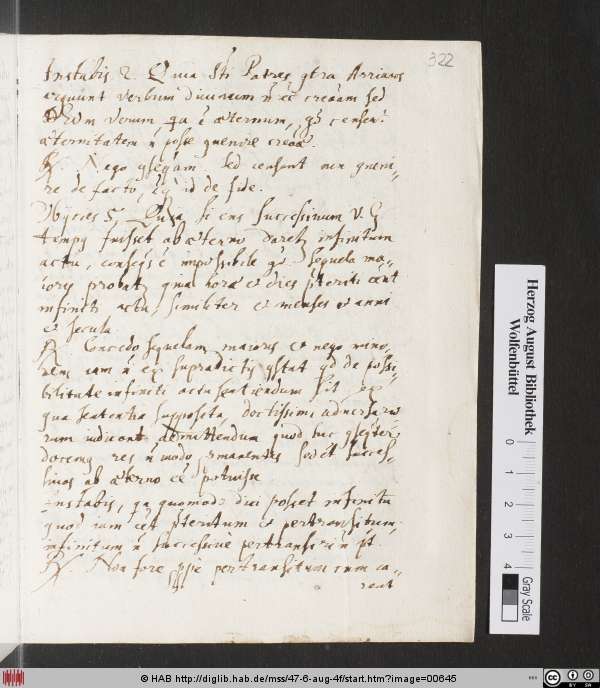 322
Instabis 2. Quia Sti Patres gtra Arrianos
arguunt verbum divinum ñ eē creatam sed
verum qa ē æternum, go censent
æternitatem ñ posse creæ.
R. Nego gseqam. sed censent non
re de facto, eq id de fide.
Obijcies 5. Quia si ens successivum V. G.
tempq fuisset ab æterno daretz infinitum
actu, conseqs ē impossibile go sequela ma-
ioris probatz quia horæ et dies pteriti eēnt
infiniti actu, similiter et menses et anni
et secula.
R. Concedo sequelam maioris et nego mino-
rem nam ñ ex supradictis gstat qd de possi-
bilitate infiniti actu sentiendum sit, ex
qua sententia supposita, doctissimi adversario
rum admittendum quod hac gseqter
docemq res ñ modo pmanentes sed et succes-
sivas ab æterno eē potuisse
Instabis, qa quomodo dici posset infinitū
quod iam eēt pteritum et pertransitum,
infinitum ñ successive pertransiri ñ pt.
R. Non fore ppie pertransitum cum ca-
reat
Herzog August Bibliothek
Wolfenbüttel
0 1 2 3 4
Gray Scale
© HAB http://diglib.hab.de/mss/47-6-aug-4f/start.htm?image=00645